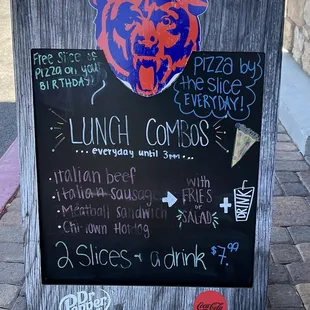 Free slice of
pizza on your
BIRTHDAY!
pizza by
the slice
EVERYDAY!
LUNCH COMBOS
... everyday until 3pm ...
• italian beef
• italian sausage
• Meatball sandwich
• Chi-town Hotdog
with
FRIES
or
SALAD
+ DRINK
2 slices + a drink $7.99
Dr Pepper
Coca-Cola